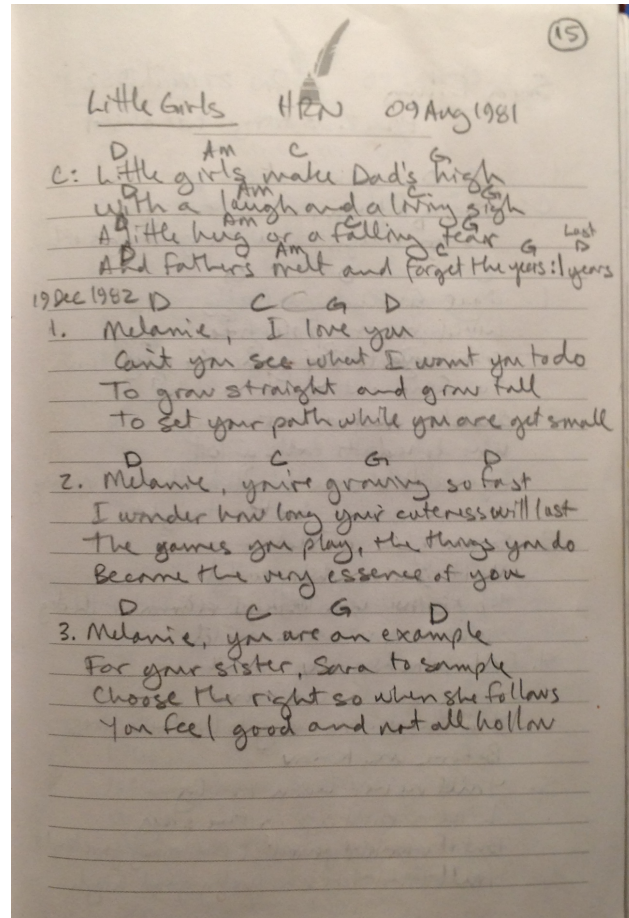 15
Little Girls HRN 09 Aug 1981
D Am C G
C: Little girls make Dad's high
D Am C G
With a laugh and a loving sigh
D Am C G
A little hug or a falling tear
D Am C G Last D
And fathers melt and forget the years :| years
19 Dec 1982 D C G D
1. Melanie, I love you
Can't you see what I want you to do
To grow straight and grow tall
To set your path while you are yet small
D C G D
2. Melanie, you're growing so fast
I wonder how long your cuteness will last
The games you play, the things you do
Become the very essence of you
D C G D
3. Melanie, you are an example
For your sister, Sara to sample
Choose the right so when she follows
You feel good and not all hollow